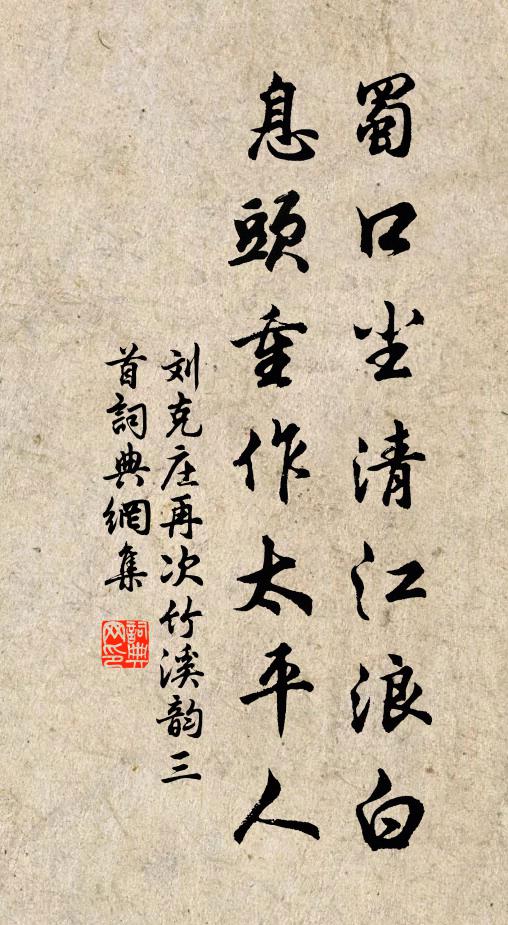 蜀口尘清江浪白
息頭重作太平人
刘克庄再次竹溪韵三
首詞典網集
詞典
网印